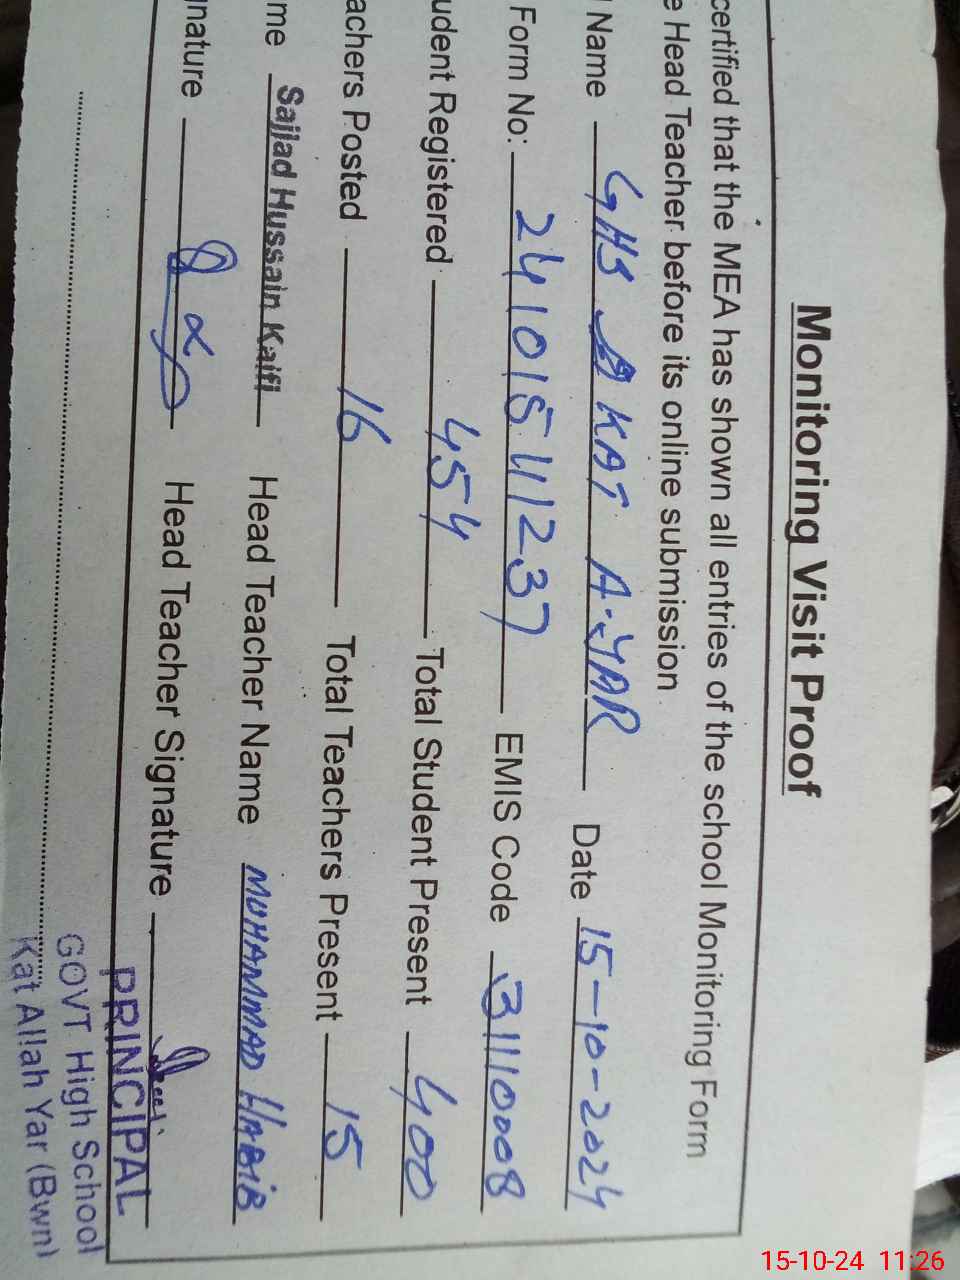 Monitoring Visit Proof
certified that the MEA has shown all entries of the school Monitoring Form
e Head Teacher before its online submission
l Name GHS KAT A.YAR Date 15-10-2024
Form No: 24101541237 EMIS Code 31110008
udent Registered 454 Total Student Present 400
achers Posted 16 Total Teachers Present 15
me Sajjad Hussain Kaifi Head Teacher Name MUHAMMAD HABIB
gnature Head Teacher Signature
PRINCIPAL
GOVT High School
Kat Allah Yar (Bwn)
15-10-24 11:26